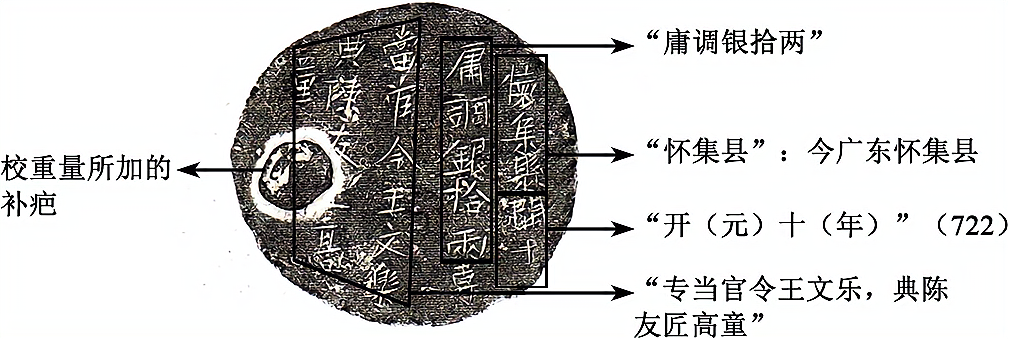 懷集縣開十
庸調銀拾兩專
當官令王文樂
典陳友匠高
童
“庸调银拾两”
“怀集县”：今广东怀集县
“开（元）十（年）”（722）
“专当官令王文乐，典陈
友匠高童”
校重量所加的
补疤